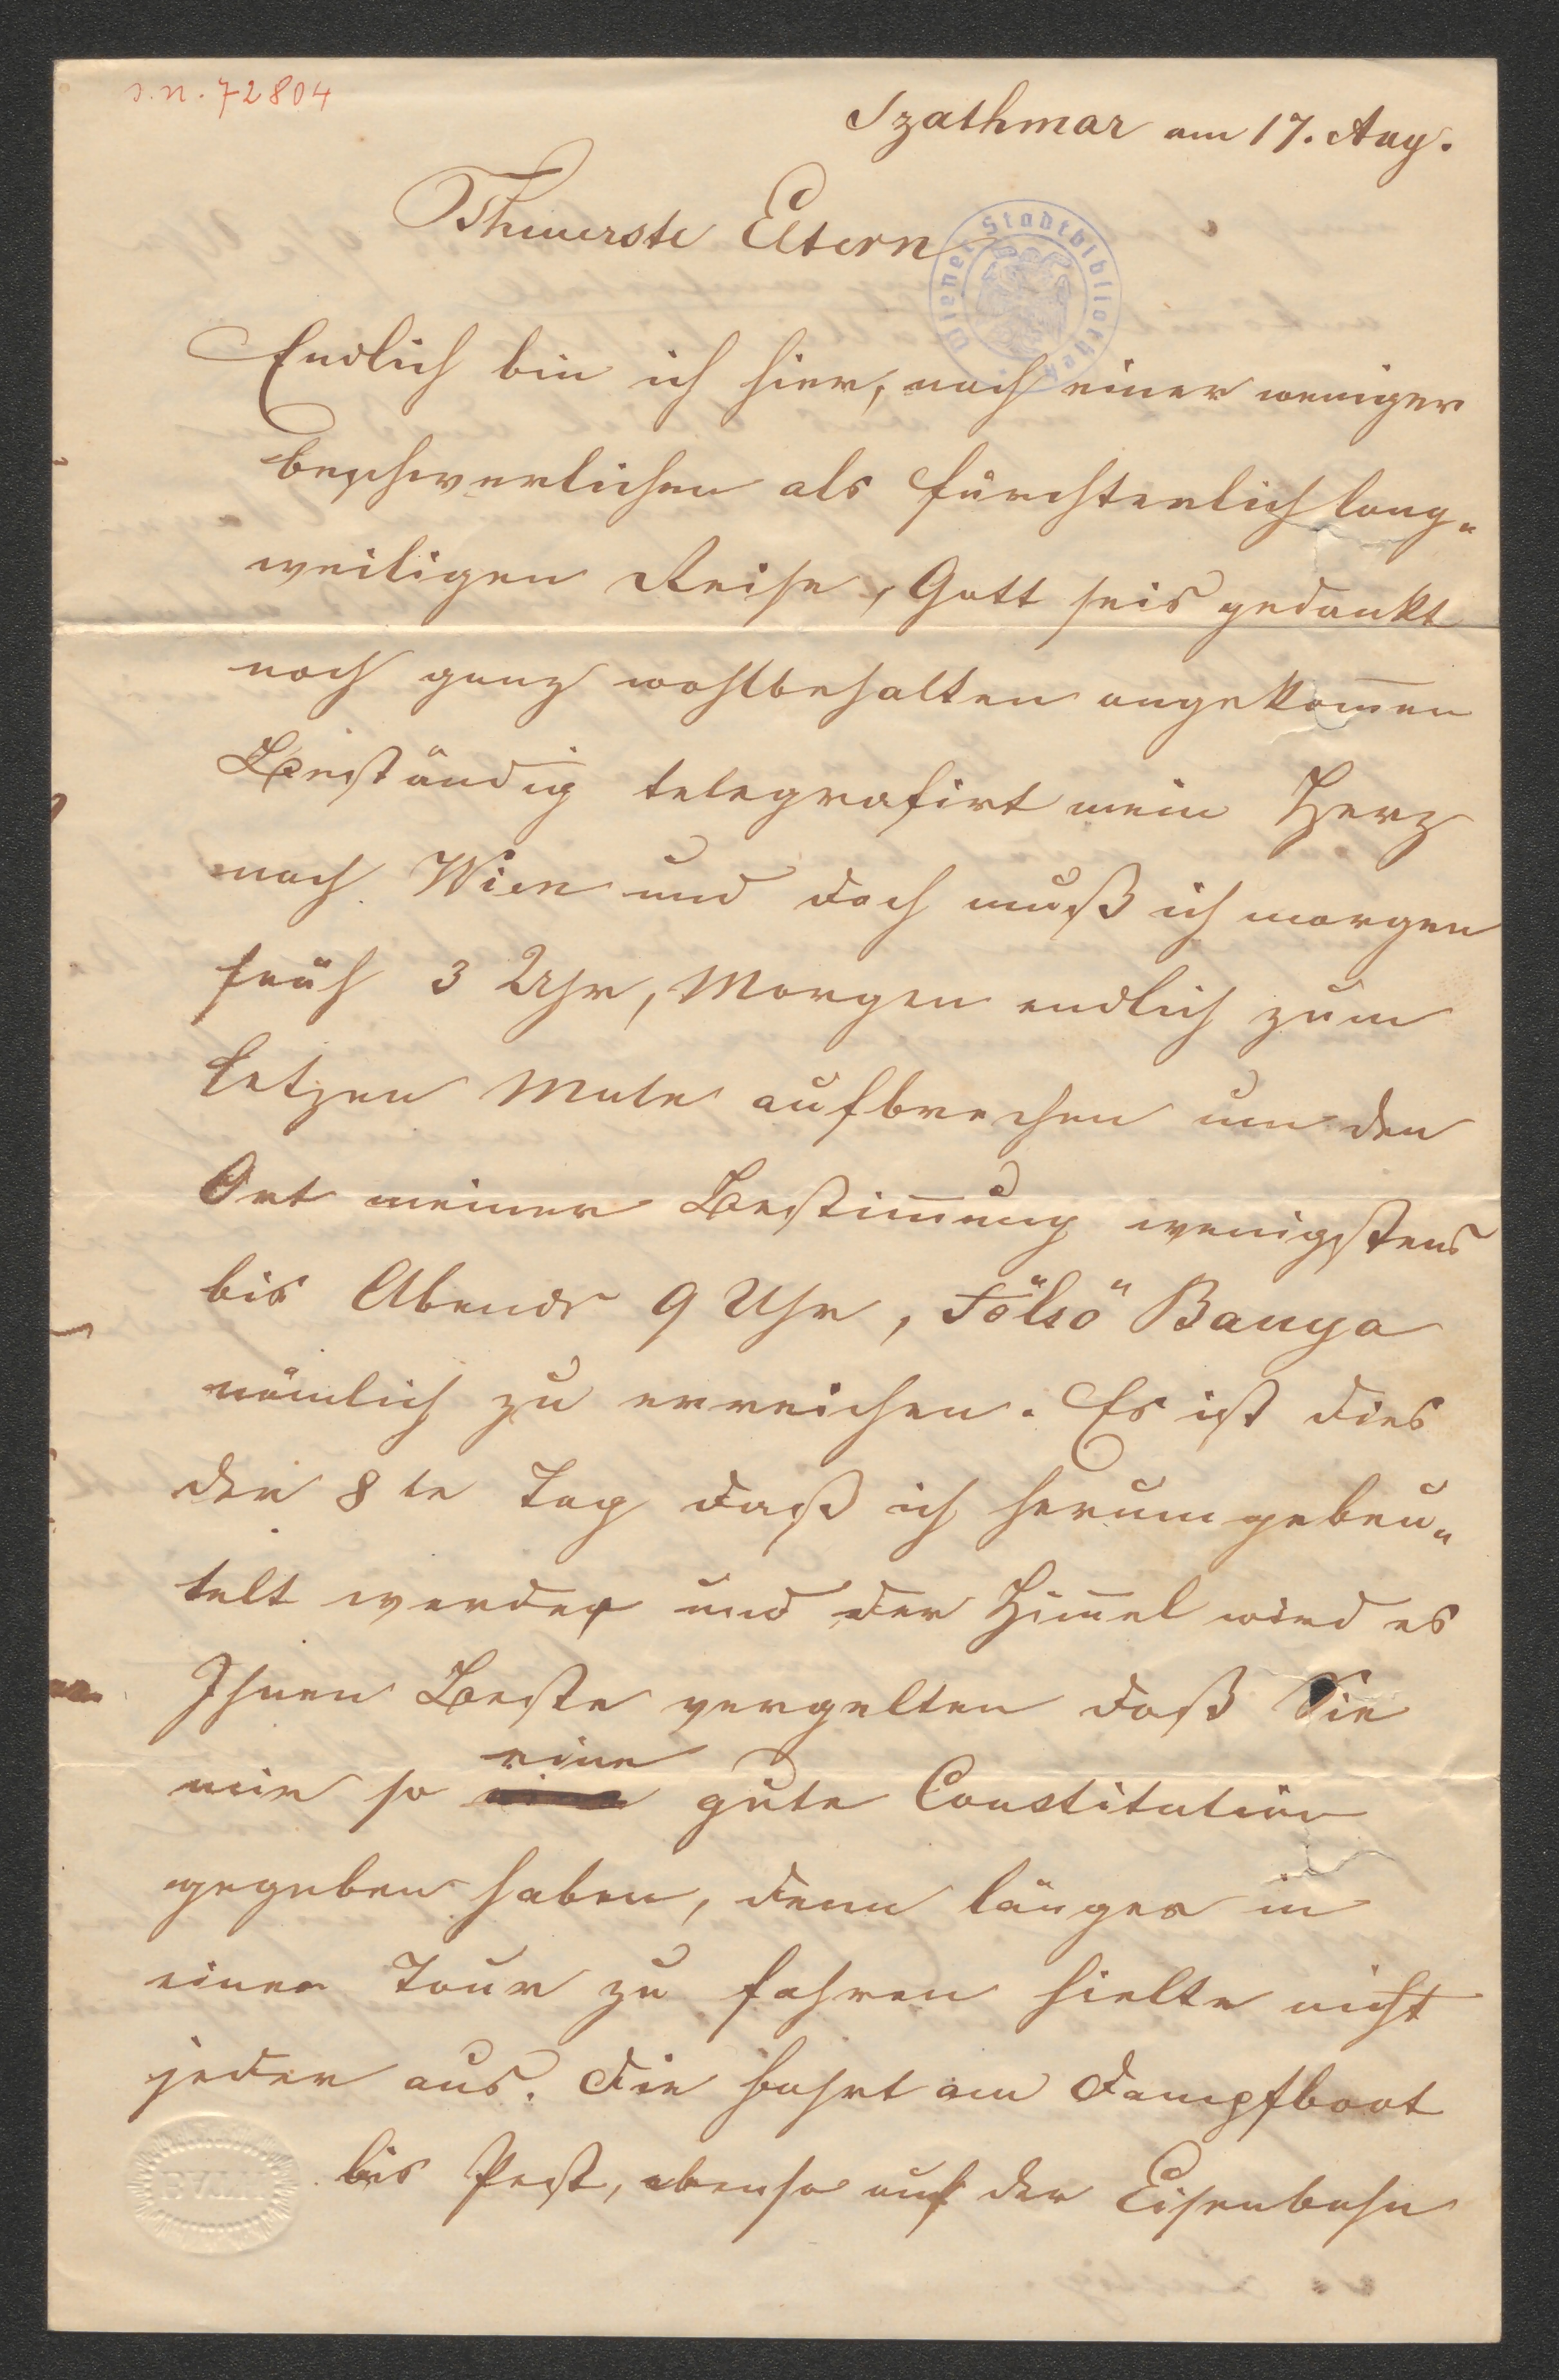 I. N. 72804
Szathmar am 17. Aug.
Theuerste Eltern
Wiener Stadtbibliothek
Endlich bin ich hier, nach einer weniger
beschwerlichen als fürchterlich lang„
weiligen Reise, Gott seis gedankt
noch ganz wohlbehalten angekom̅en
Beständig telegrafirt mein Herz
nach Wien und doch muß ich morgen
früh 3 Uhr, Morgen endlich zum
letzen Male aufbrechen um den
Ort meiner Bestim̅ung wenigstens
bis Abends 9 Uhr, Fölsö Banya
nämlich zu erreichen. Es ist dies
der 8te Tag daß ich herumgebeu„
telt werde und der Him̅el wird es
Ihnen Beste vergelten daß Sie
eine
mir so gute Constitution
gegeben haben, denn länger in
einer Tour zu fahren hielte nicht
jeder aus. Die Fahrt am Dampfboot
bis Pest, ebenso auf der Eisenbahn
BATH